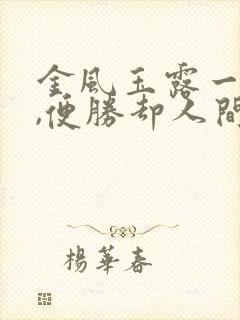 金風玉露一
,便勝却人間
楊華春